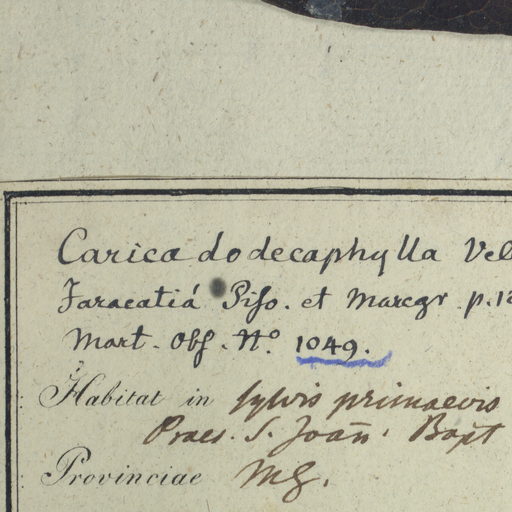 Carica dodecaphylla Vel
Jaracatiá Piso. et Marcgr. p. 12
Mart. Obs. No. 1049.
Habitat in sylvis primaevis
Praes. S. Joañ. Bapt
Provinciae MG.